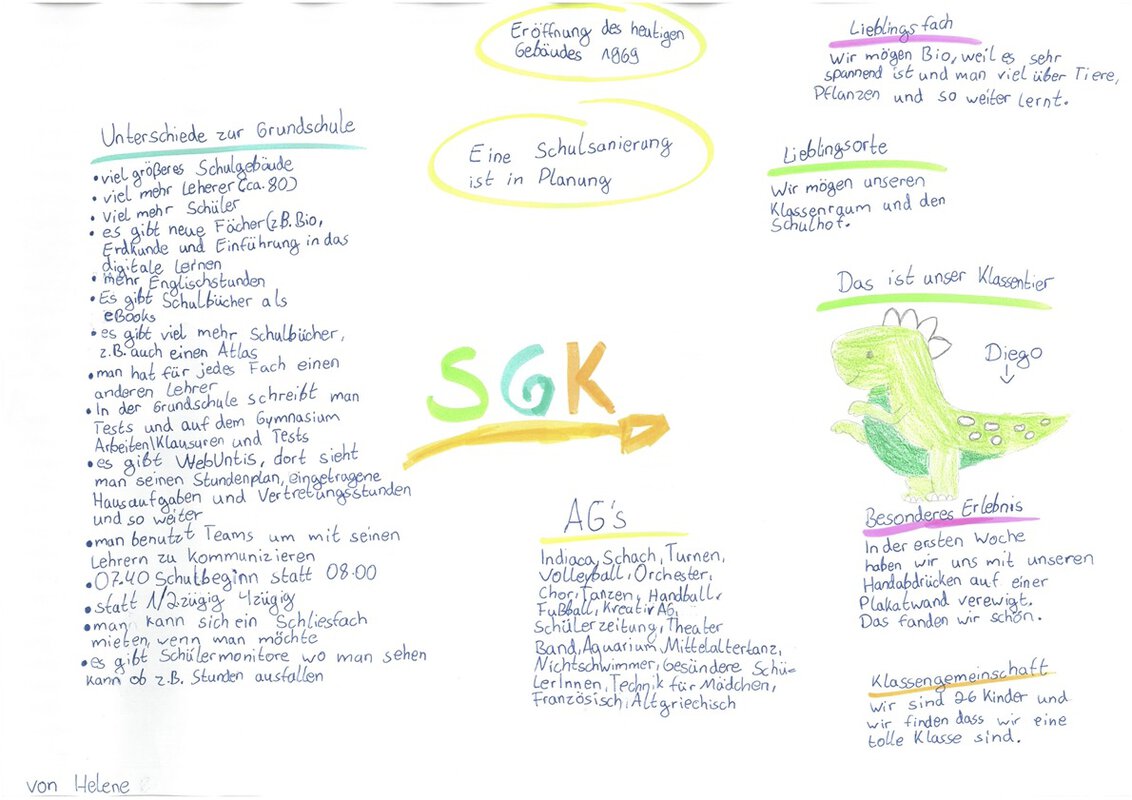 Eröffnung des heutigen
Gebäudes 1969
Eine Schulsanierung
ist in Planung
Unterschiede zur Grundschule
• viel größeres Schulgebäude
• viel mehr Leherer (ca. 80)
• viel mehr Schüler
• es gibt neue Fächer (z.B. Bio,
Erdkunde und Einführung in das
digitale lernen
• mehr Englischstunden
• Es gibt Schulbücher als
eBooks
• es gibt viel mehr Schulbücher,
z.B. auch einen Atlas
• man hat für jedes Fach einen
anderen Lehrer
• In der Grundschule schreibt man
Tests und auf dem Gymnasium
Arbeiten/Klausuren und Tests
• es gibt WebUntis, dort sieht
man seinen Stundenplan, eingetragene
Hausaufgaben und Vertretungsstunden
und so weiter
• man benutzt Teams um mit seinen
Lehrern zu kommunizieren
• 07.40 Schulbeginn statt 08:00
• statt 1/2zügig 4zügig
• man kann sich ein Schliesfach
mieten, wenn man möchte
• es gibt Schülermonitore wo man sehen
kann ob z.B. Stunden ausfallen
von Helene
SGK
AG's
Indiaca, Schach, Turnen,
Volleyball, Orchester,
Chor, Tanzen, Handball,
Fußball, Kreativ AG,
Schülerzeitung, Theater
Band, Aquarium, Mittelaltertanz,
Nichtschwimmer, Gesündere Schü-
lerInnen, Technik für Mädchen,
Französisch, Altgriechisch
Lieblingsfach
Wir mögen Bio, weil es sehr
spannend ist und man viel über Tiere,
Pflanzen und so weiter lernt.
Lieblingsorte
Wir mögen unseren
Klassenraum und den
Schulhof.
Das ist unser Klassentier
Diego
Besonderes Erlebnis
In der ersten Woche
haben wir uns mit unseren
Handabdrücken auf einer
Plakatwand verewigt.
Das fanden wir schön.
Klassengemeinschaft
Wir sind 26 Kinder und
wir finden dass wir eine
tolle Klasse sind.